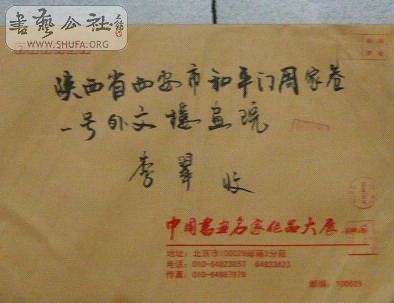 書藝公社
www.SHUFA.ORG
陕西省西安市和平门周家巷
一号外文楼画院
李翠 收
中国书画名家作品大展
地址：北京市100029邮箱2分箱
电话：010-64823857 64823823
传真：010-64987878
邮编：100029